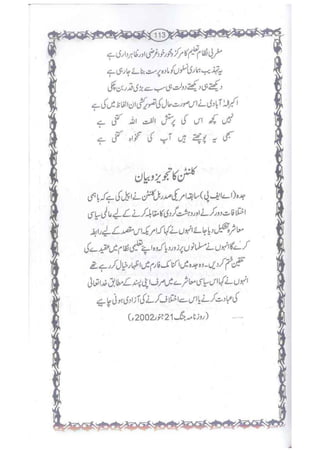 113
مغربی نظام تعلیم کا مرکز و محور خود غرضی اور ظاہر داری ہے
یہ تہذیب ہماری نسلوں کو مادہ پرست بنائے جا رہی ہے
دیکھتے ہی دیکھتے دولت ہی سب سے بڑی قدر بن چکی
اکبر الہ آبادی نے اس صورت حال کی تصویر کشی ان الفاظ میں کی ہے
نہیں کچھ اس کی پرسش الفت اللہ کتنی ہے
سبھی یہ پوچھتے ہیں آپ کی تنخواہ کتنی ہے
کلنٹن کا تجویز و بیان
جدہ (اے ایف پی) سابقہ امریکی صدر بل کلنٹن نے اپیل کی ہے کہ باہمی
اختلافات دور کرنے اور دہشت گردی کا مقابلہ کرنے کے لیے عالمی سیاسی
معاشرہ تشکیل دیا جائے انہوں نے کہا کہ امریکہ اس مقصد کے لیے رابطہ
کرے گا انہوں نے مسلمانوں پر زور دیا کہ وہ اپنے تعلیمی نظام میں عقیدے کی
تلقین ختم کر دیں۔ وہ جدہ میں اکنامک فارم میں اظہار خیال کر رہے تھے
انہوں نے کہا اس سیاسی معاشرے میں صرف اپنی پسند کے مطابق خدا تعالیٰ
کی عبادت کرنے یا اس سے اختلاف کرنے کی آزادی ہونی چاہیے
(روزنامہ جنگ 21 جنور 2002ء)